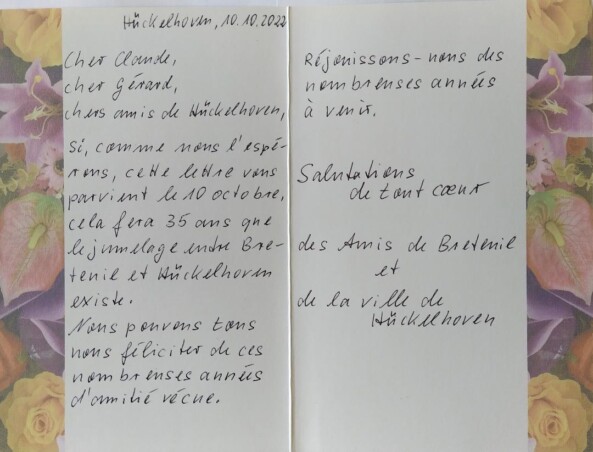 Hückelhoven, 10.10.2022
Cher Claude,
cher Gérard,
chers amis de Hückelhoven,
Si, comme nous l'espé-
rons, cette lettre vous
parvient le 10 octobre,
cela fera 35 ans que
le jumelage entre Bre-
teuil et Hückelhoven
existe.
Nous pouvons tous
nous féliciter de ces
nombreuses années
d'amitié vécue.
Réjouissons-nous des
nombreuses années
à venir.
Salutations
de tout cœur
des Amis de Breteuil
et
de la ville de
Hückelhoven